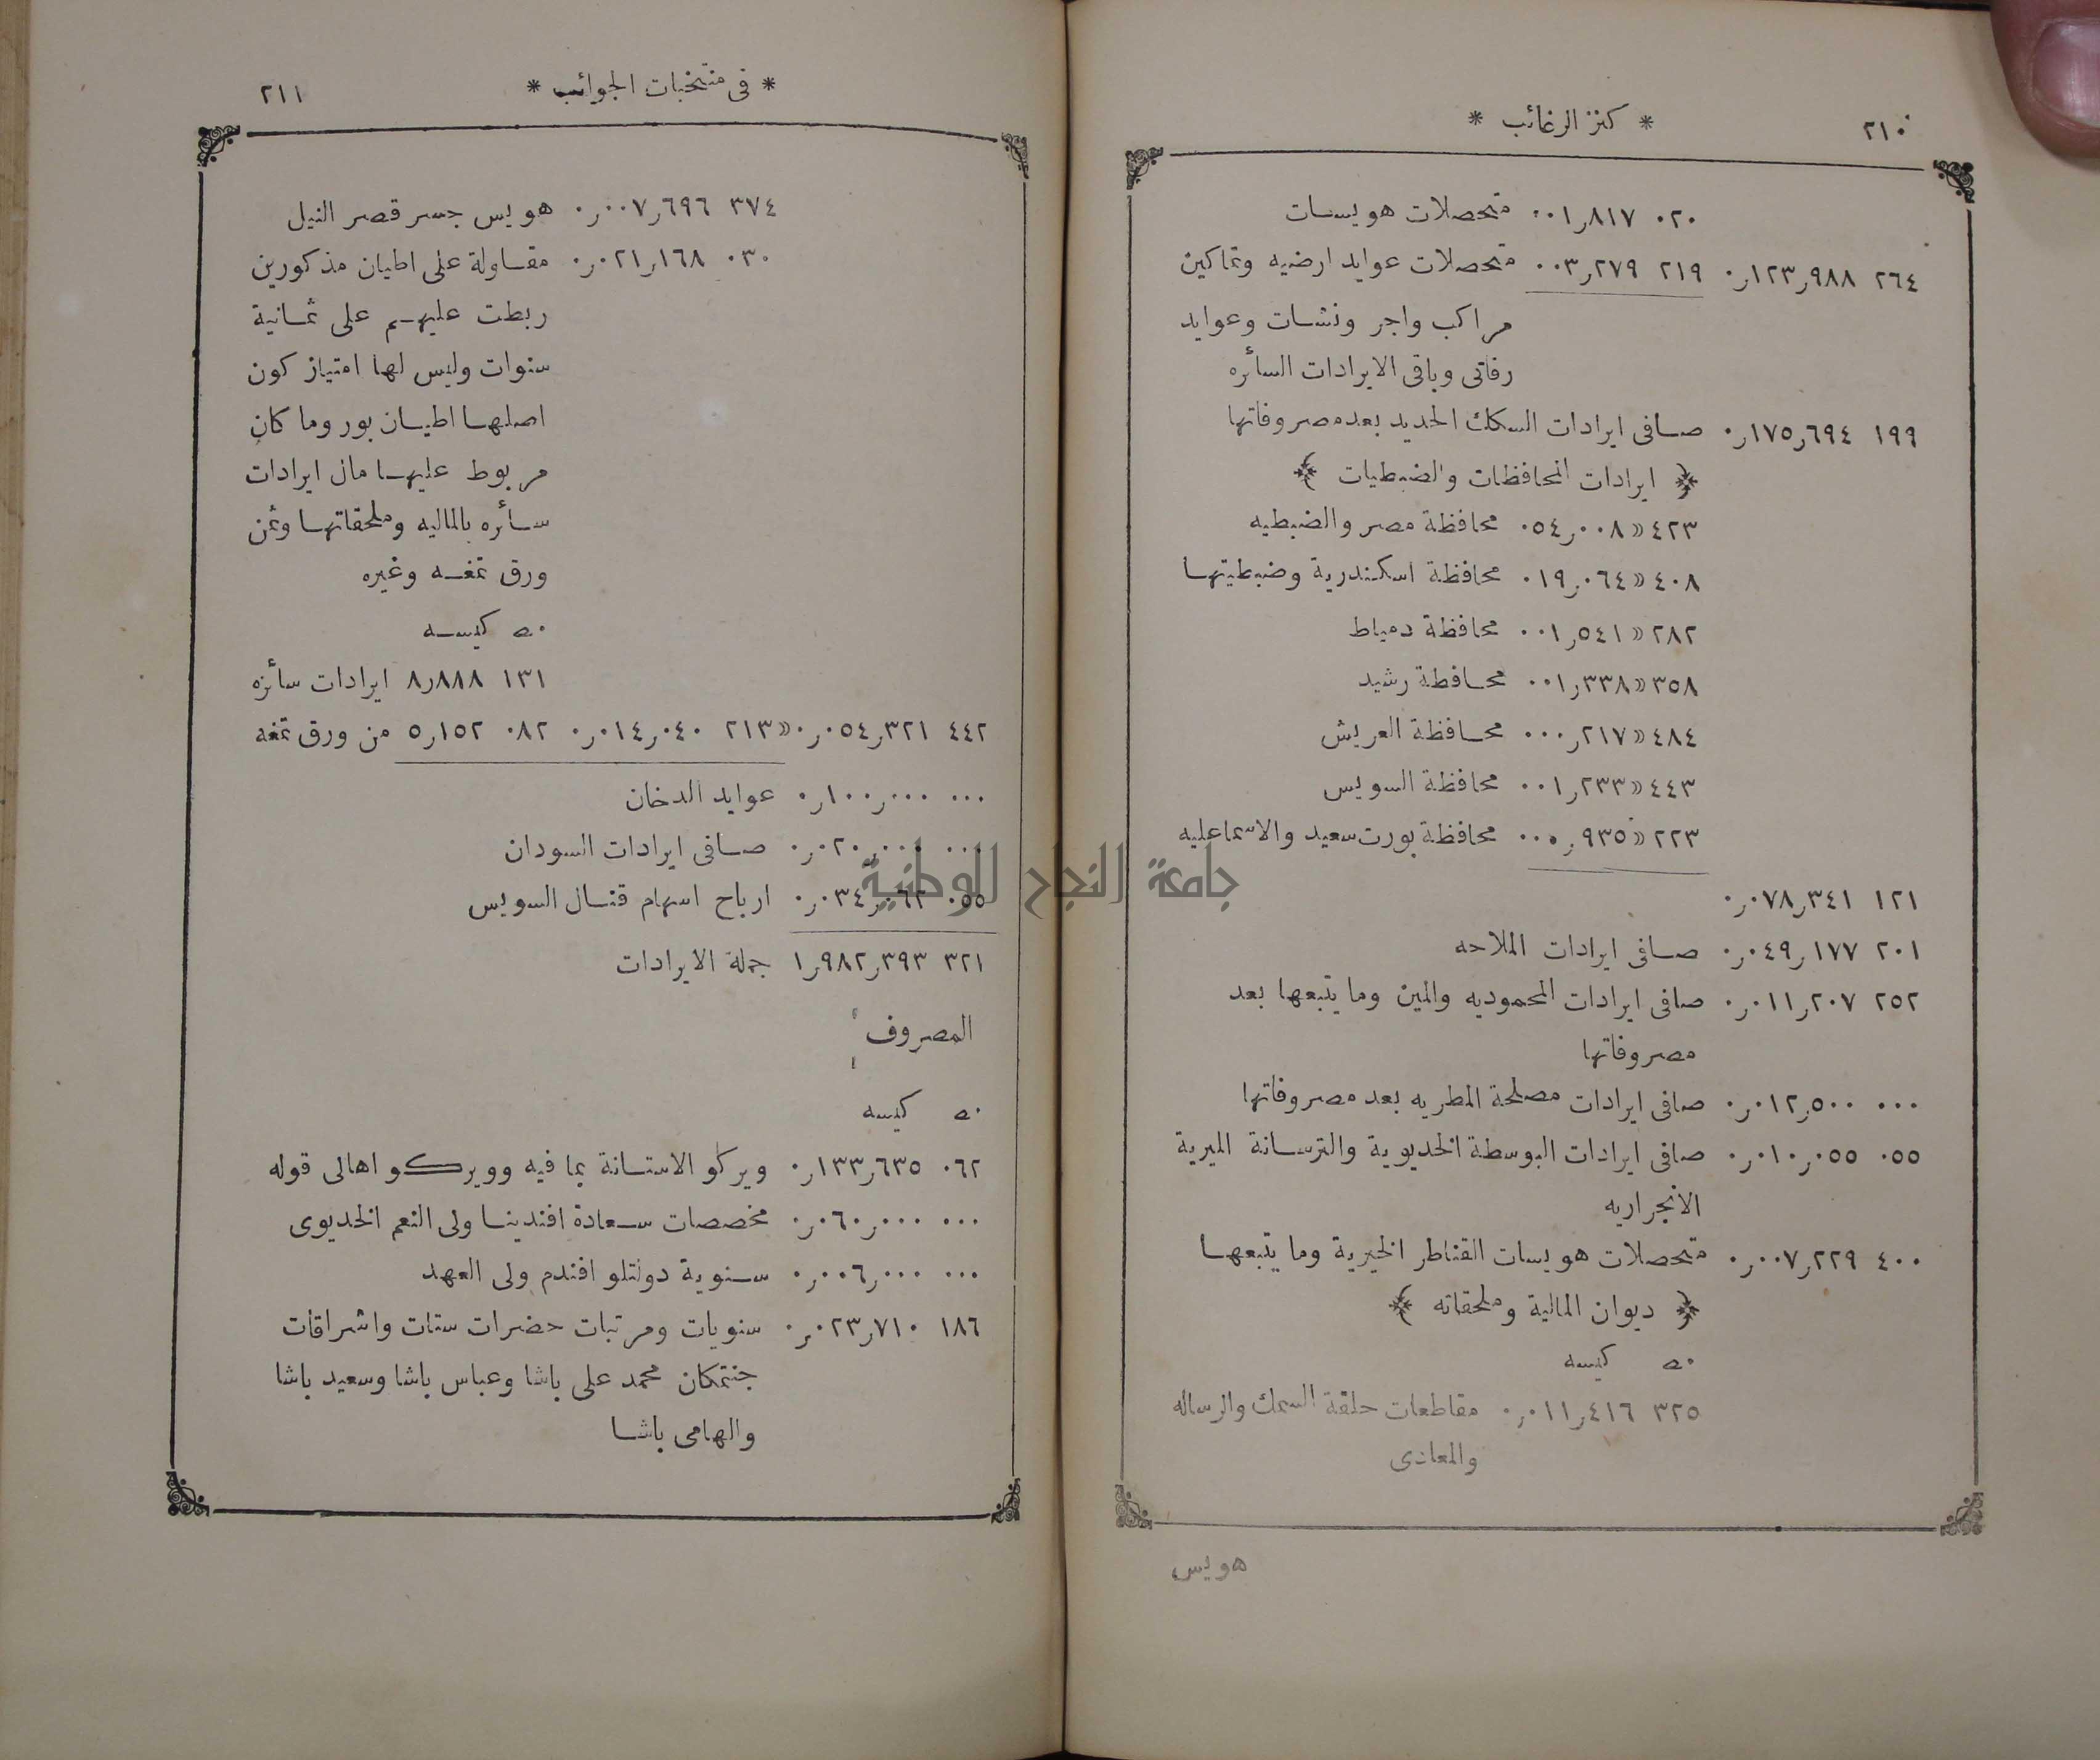 ٢١٠ * كنز الرغائب *
٠٢٠ ٠٠١٫٨١٧ متحصلات هويسات
٢٦٤ ٠٫١٢٣٫٩٨٨ ٢١٩ ٠٠٣٫٢٧٩ متحصلات عوايد ارضيه وتماكين
مراكب واجر ونشات وعوايد
رفاتى وباقى الايرادات السائره
١٩٩ ٠٫١٧٥٫٦٩٤ صافى ايرادات السكك الحديد بعد مصروفاتها
﴿ ايرادات المحافظات والضبطيات ﴾
٤٢٣ » ٠٥٤٫٠٠٨ محافظة مصر والضبطيه
٤٠٨ » ٠١٩٫٠٦٤ محافظة اسكندرية وضبطيتها
٢٨٢ » ٠٠١٫٥٤١ محافظة دمياط
٣٥٨ » ٠٠١٫٣٣٨ محافظة رشيد
٤٨٤ » ٠٠٠٫٢١٧ محافظة العريش
٤٤٣ » ٠٠١٫٢٣٣ محافظة السويس
٢٢٣ » ٠٠٠٫٩٣٥ محافظة بورت سعيد والاسماعليه
١٢١ ٠٫٠٧٨٫٣٤١
٢٠١ ٠٫٠٤٩٫١٧٧ صافى ايرادات الملاحه
٢٥٢ ٠٫٠١١٫٢٠٧ صافى ايرادات المحموديه والمين وما يتبعها بعد
مصروفاتها
٠٠٠ ٠٫٠١٢٫٥٠٠ صافى ايرادات مصلحة المطريه بعد مصروفاتها
٠٥٥ ٠٫٠١٠٫٠٥٥ صافى ايرادات البوسطة الخديوية والترسانة الميرية
الانجراريه
٤٠٠ ٠٫٠٠٧٫٢٢٩ متحصلات هويسات القناطر الخيرية وما يتبعها
﴿ ديوان المالية وملحقاته ﴾
٥٠ كيسه
٣٢٥ ٠٫٠١١٫٤١٦ مقاطعات حلقة السمك والرساله
والمعادى
هويس
* فى منتخبات الجوائب * ٢١١
٣٧٤ ٠٫٠٠٧٫٦٩٦ هويس جسر قصر النيل
٠٣٠ ٠٫٠٢١٫١٦٨ مقاولة على اطيان مذكورين
ربطت عليهم على ثمانية
سنوات وليس لها امتياز كون
اصلها اطيان بور وما كان
مربوط عليها مال ايرادات
سائره بالماليه وملحقاتها وثمن
ورق تمغه وغيره
٥٠ كيسه
١٣١ ٨٫٨٨٨ ايرادات سائره
٤٤٢ ٠٫٠٥٤٫٣٢١ » ٢١٣ ٠٫٠١٤٫٠٤٠ ٠٨٢ ٥٫١٥٢ من ورق تمغه
٠٠٠ ٠٫١٠٠٫٠٠٠ عوايد الدخان
٠٠٠ ٠٫٠٢٠٫٠٠٠ صافى ايرادات السودان
٠٥٥ ٠٫٠٣٤٫٠٦٢ ارباح اسهام قنال السويس
٣٢١ ١٫٩٨٢٫٣٩٣ جملة الايرادات
المصروف
٥٠ كيسه
٠٦٢ ٠٫١٣٣٫٦٣٥ ويركو الاستانة بما فيه وويركو اهالى قوله
٠٠٠ ٠٫٠٦٠٫٠٠٠ مخصصات سعادة افندينا ولى النعم الخديوى
٠٠٠ ٠٫٠٠٦٫٠٠٠ سنوية دولتلو افندم ولى العهد
١٨٦ ٠٫٠٢٣٫٧١٠ سنويات ومرتبات حضرات ستات واشراقات
جنتمكان محمد على باشا وعباس باشا وسعيد باشا
والهامى باشا
جامعة النجاح الوطنية